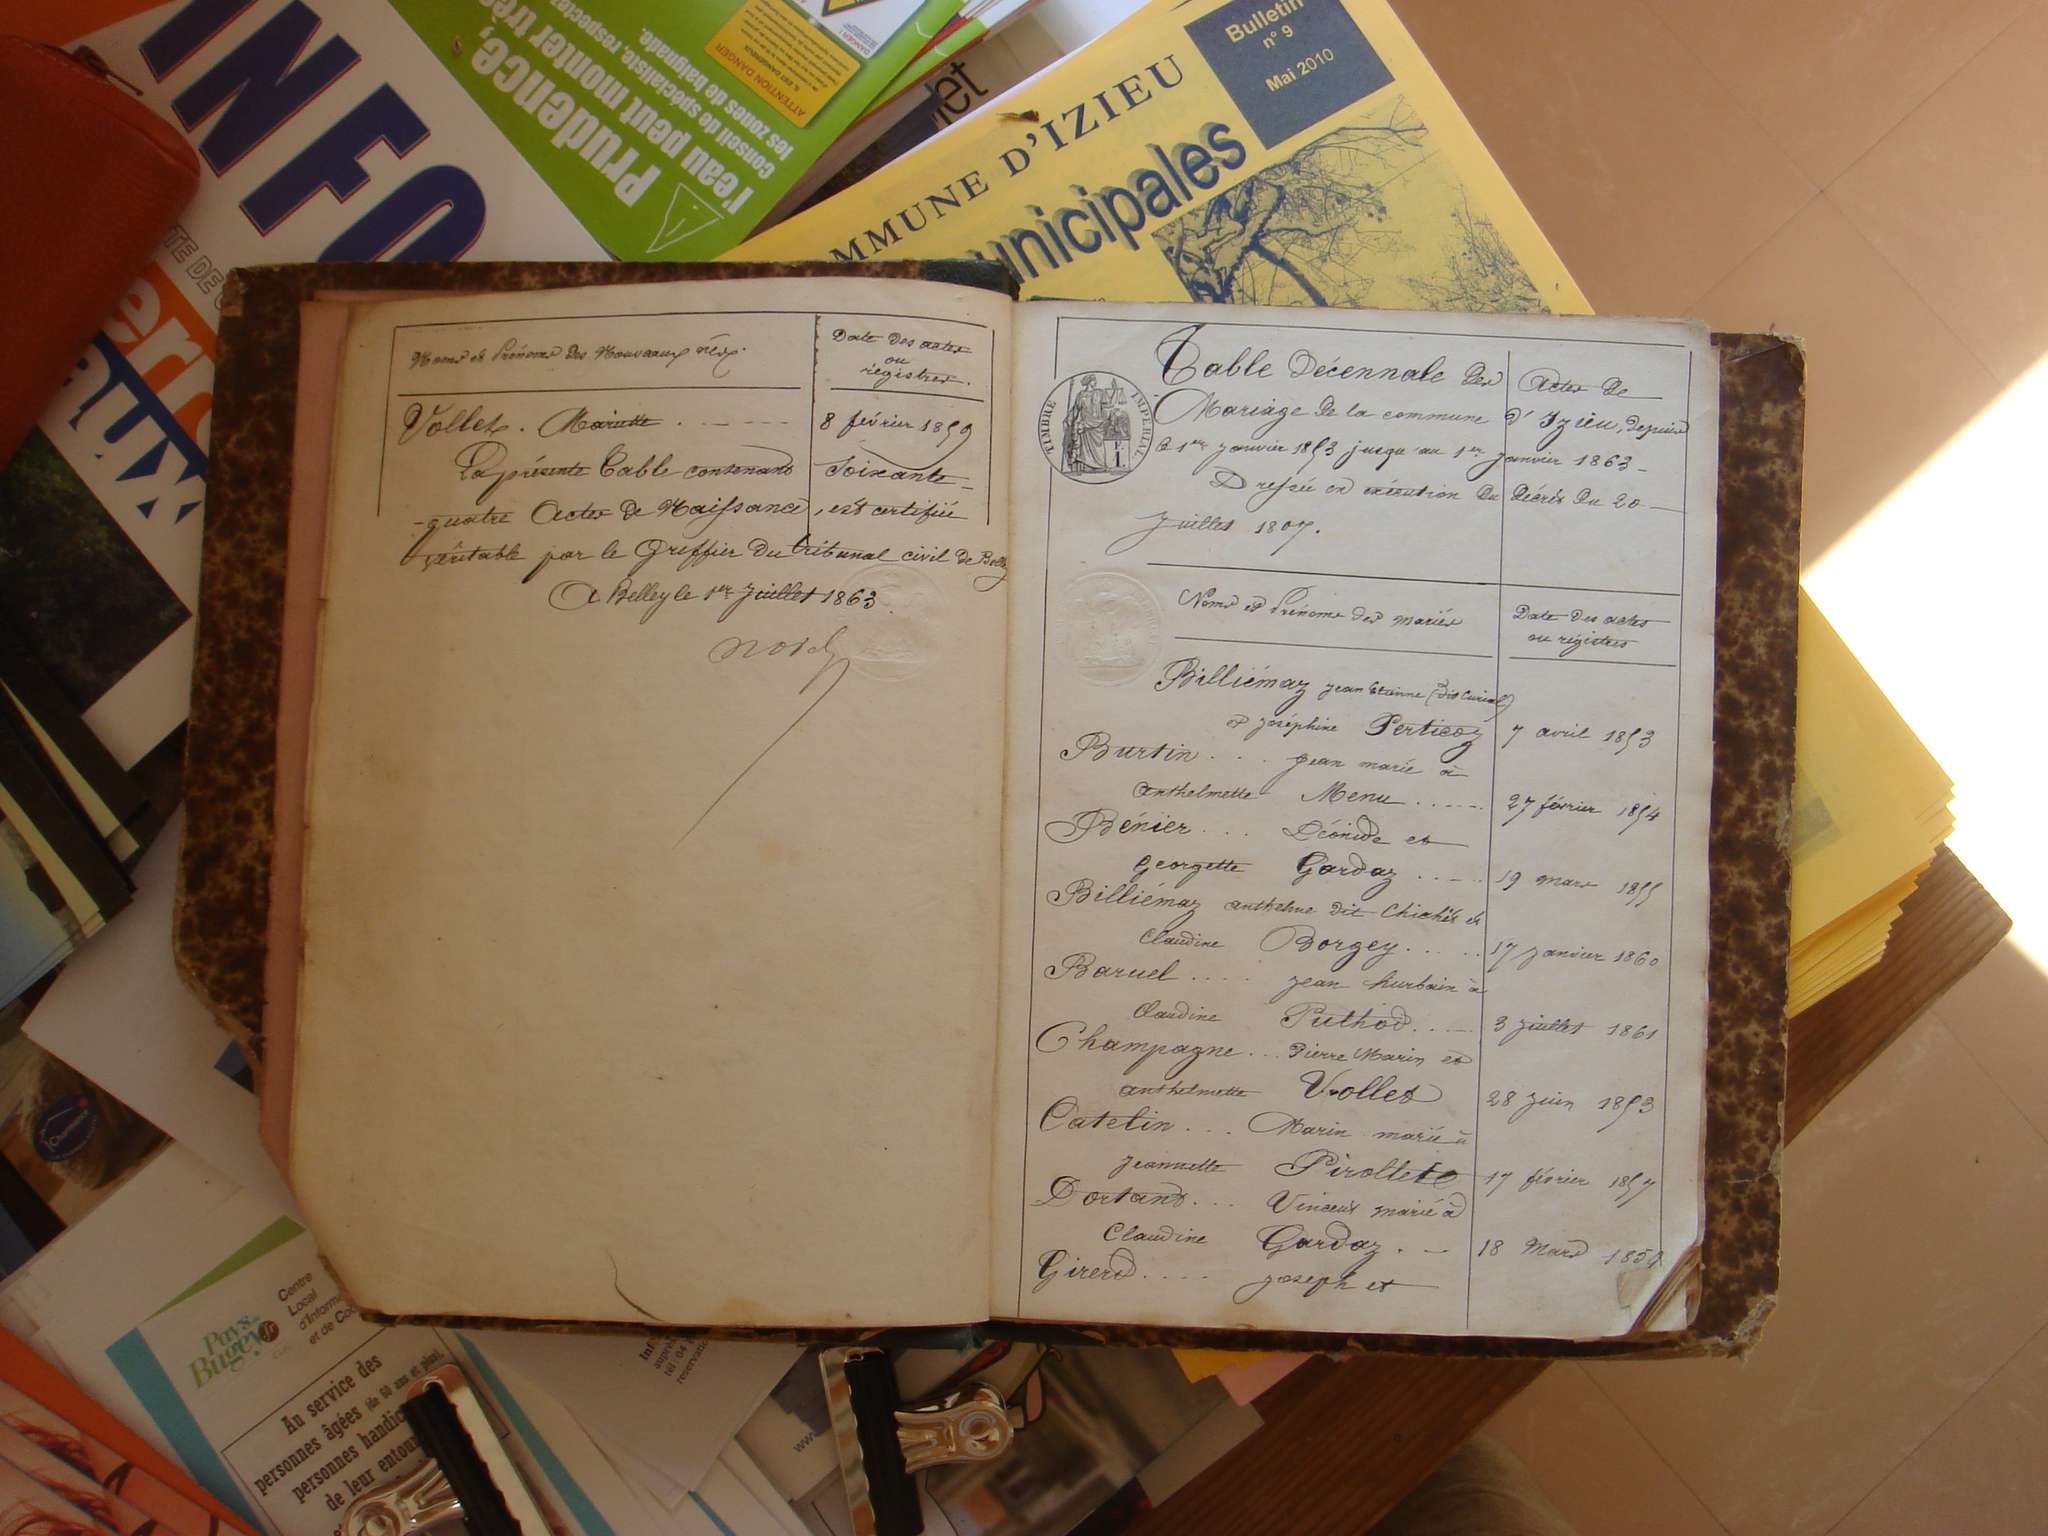 INFO
Prudence,
l'eau peut monter très
conseil de spécialiste, respectez
les zones de baignade.
ATTENTION DANGER
Bulletin
n° 9
Mai 2010
MMUNE D'IZIEU
unicipales
Noms et Prénoms des Nouveaux nés.
Date des actes
ou
régistres.
Vollet. Mariette 8 février 1859
La présente Table contenant soixante-
quatre Actes de Naissance, est certifiée
véritable par le Greffier du tribunal civil de Belley
A Belley le 1er Juillet 1863.
TIMBRE IMPERIAL
Table Décennale des Actes de
Mariage de la commune d'Izieu, depuis
le 1er janvier 1853 jusqu'au 1er janvier 1863-
Dressée en exécution du Décrêt du 20
Juillet 1807.
Noms et Prénoms des mariés
Date des actes
ou régistres
Billiémaz jean Etienne (dit Curial)
et joséphine Perticoz 7 avril 1853
Burtin . . . jean marie à
anthelmette Menu ..... 27 février 1854
Bénier . . . Léonide et
georgette Gardaz ..... 19 mars 1855
Billiémaz anthelme dit Chichet et
Claudine Borgey ..... 17 janvier 1860
Baruel ..... jean hurbain à
Claudine Puthod ..... 3 juillet 1861
Champagne ... Pierre Marin et
anthelmette Vollet 28 juin 1853
Catelin ... Marin marié à
jeannette Pirollet 17 février 1857
Dortand ... Vincent marié à
Claudine Gardaz . - 18 Mars 185
Girerd .... joseph et
Pays
Bugey
Centre
Local
d'Informa
et de Coo
Au service des
personnes âgées (de 60 ans et plus),
personnes handic
de leur entour